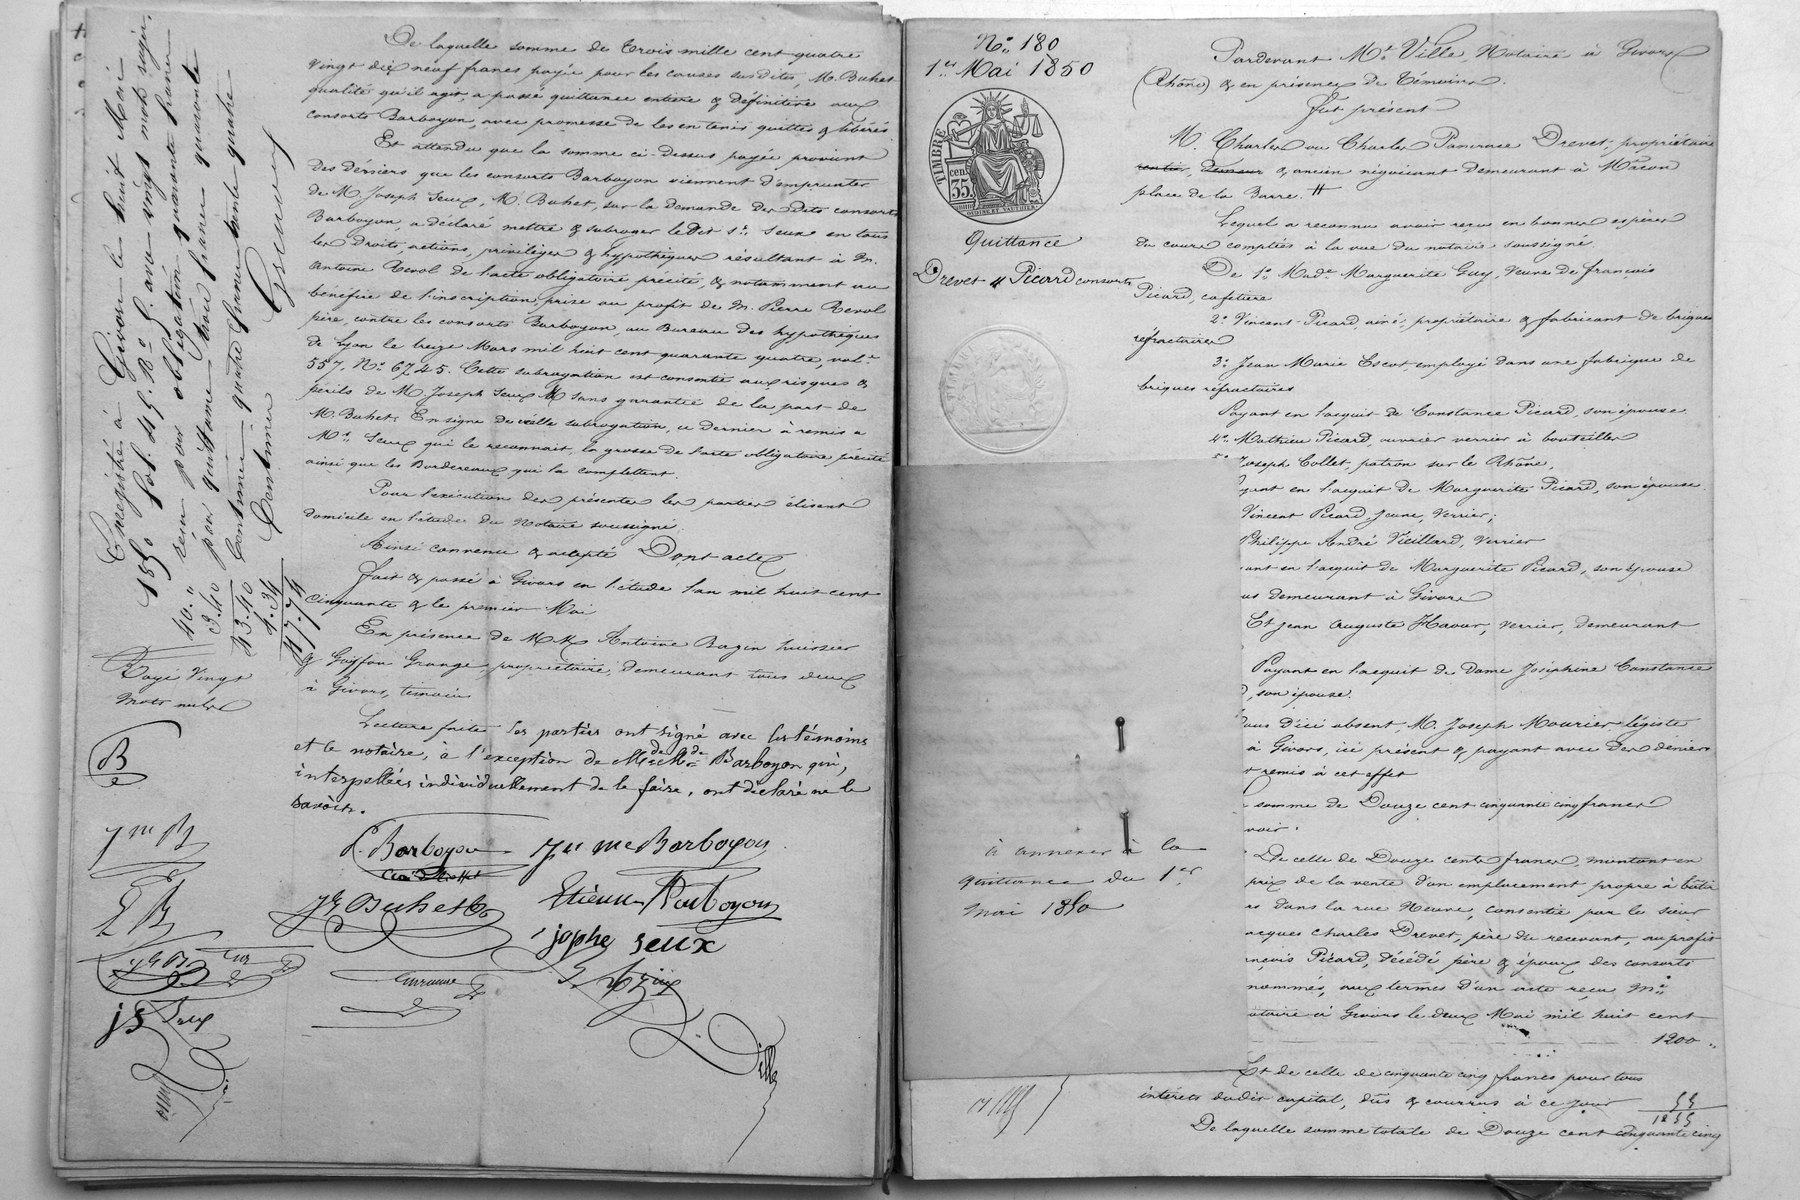 De laquelle somme de trois mille cent quatre
vingt dix neuf francs payée pour les causes susdites, M. Buhet
qualité qu'il agit, a passé quittance entière & définitive aux
consorts Barboyon, avec promesse de les en tenir quittes & libérés
Et attendu que la somme ci-dessus payée provient
des deniers que les consorts Barboyon viennent d'emprunter
de M. Joseph Seux, M. Buhet, sur la demande des dits consorts
Barboyon, a déclaré mettre & subroger le dit Sr. Seux en tous
les droits, actions, privilèges & hypothèques résultant à M.
Antoine Revol de l'acte obligatoire précité, & notamment au
bénéfice de l'inscription prise au profit de M. Pierre Revol
père, contre les consorts Barboyon, au Bureau des hypothèques
de Lyon le treize Mars mil huit cent quarante quatre, vol.
557, No. 6745. Cette subrogation est consentie aux risques &
périls de M. Joseph Seux sans garantie de la part de
M. Buhet. En signe de cette subrogation, ce dernier a remis a
Mr. Seux qui le reconnait, la grosse de l'acte obligatoire précité
ainsi que les Bordereaux qui la complettent.
Pour l'exécution des présentes les parties élisent
domicile en l'étude du Notaire soussigné.
Ainsi convenu & accepté Dont acte
fait & passé à Givors en l'étude l'an mil huit cent
cinquante & le premier Mai
En présence de M.M. Antoine Bazin huissier
& Guyfon Grange, propriétaire, demeurant tous deux
à Givors, témoins
Lecture faite les parties ont signé avec les témoins
et le notaire, à l'exception de Mde. Barboyon qui,
interpellées individuellement de le faire, ont déclaré ne le
savoir.
Barboyon Jn me Barboyon
Buhet Etienne Barboyon
josphe seux
Ville
Enregistré à Givors le huit Mai
1850 fol. 49. Ro. avec vingt mots rayés
reçu pour obligation quarante francs
pour quittance trois francs quarante
centimes, quatre francs trente quatre
Centimes
40. "
3.40
43.40
4.34
47.74
Rayé vingt
mots nuls
B
J me B
E B
j S
No. 180
1er. Mai 1850
TIMBRE
35
Quittance
Drevet à Picard consorts
Pardevant Me. Ville, Notaire à Givors
(Rhône) & en présence de témoins.
fut présent
M. Charles ou Charles Pancrace Drevet, propriétaire
& ancien négociant demeurant à Mâcon
place de la Barre.
Lequel a reconnu avoir reçu en bonnes espèces
du cours comptées à la vue du notaire soussigné,
De 1o. Made. Marguerite Guy, Veuve de françois
Picard, cafetière
2o. Vincent Picard, ainé, propriétaire & fabricant de briques
réfractaires
3o. Jean Marie Escot employé dans une fabrique de
briques réfractaires
Payant en l'acquit de Constance Picard, son épouse
4o. Mathieu Picard, ouvrier verrier à bouteilles
5o. Joseph Collet, patron sur le Rhône,
yant en l'acquit de Marguerite Picard, son épouse
Vincent Picard, jeune, verrier;
Philippe André Vieillard, verrier
ant en l'acquit de Marguerite Picard, son épouse
us demeurant à Givors
Et Jean Auguste Havar, verrier, demeurant
Payant en l'acquit de Dame Joséphine Constance
, son épouse
ous d'ici absent, M. Joseph Mourier, légiste
à Givors, ici présent & payant avec des deniers
t remis à cet effet
somme de Douze cent cinquante cinq francs
voir.
De celle de Douze cents francs, montant en
prix de la vente d'un emplacement propre à bâtir
dans la rue Neuve, consentie par le sieur
acques Charles Drevet, père du recevant, au profit
nçois Picard, décédé père & époux des consorts
nommés, aux termes d'un acte reçu Me.
otaire à Givors le deux Mai mil huit cent
1200 "
Et de celle de cinquante cinq francs pour tous
intérêts dudit capital, dûs & courrus à ce jour 55
1255
De laquelle somme totale de Douze cent cinquante cinq
à annexer à la
quittance du 1er
mai 1850